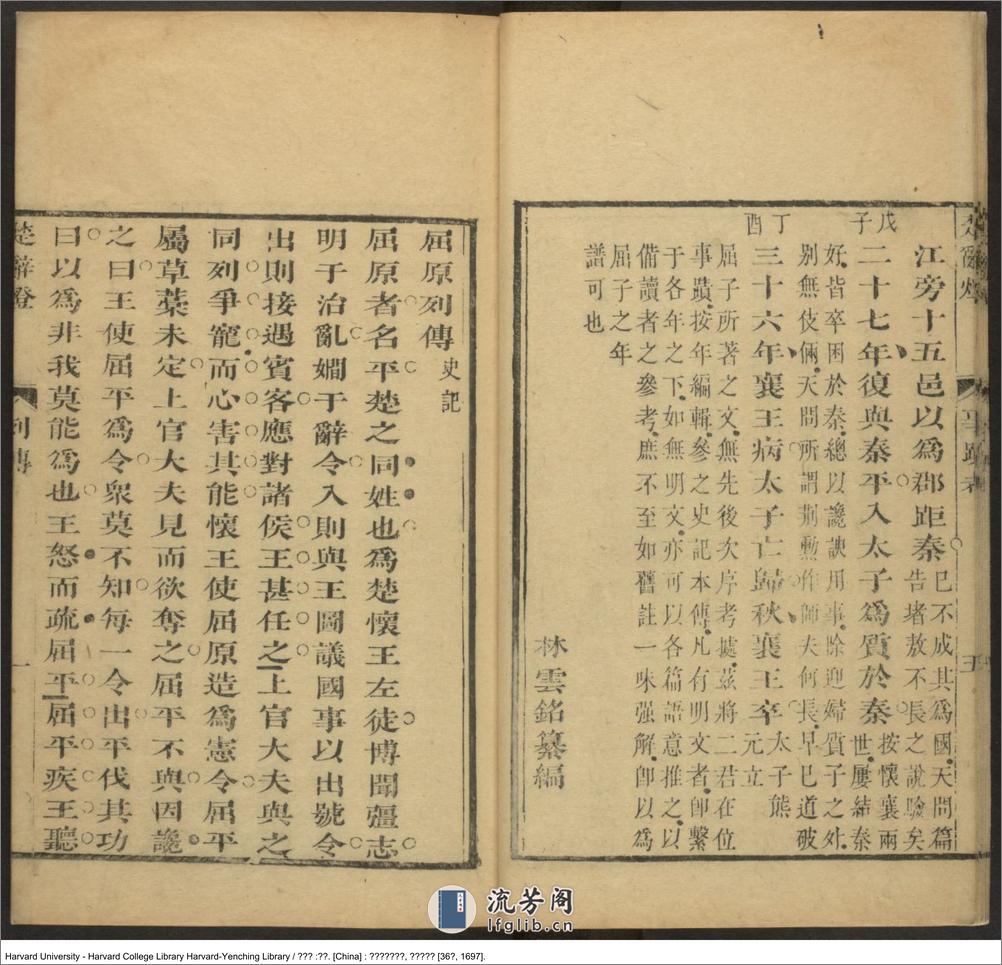 江旁十五邑以為郡距秦已不成其為國天問篇
告堵敖不長之說驗矣
戊子
二十七年復與秦平入太子為質於秦按懷襄兩
世屢結秦
好皆卒困於秦總以讒諛用事除迎婦質子之外
別無伎倆天問所謂荆勲作師夫何長早已道破
丁酉
三十六年襄王病太子亡歸秋襄王卒太子熊
元立
屈子所著之文無先後次序考據茲將二君在位
事蹟按年編輯參之史記本傳凡有明文者卽繫
于各年之下如無明文亦可以各篇語意推之以
備讀者之參考庶不至如舊註一味强解卽以為
屈子之年
譜可也
林雲銘纂編
屈原列傳 史記
屈原者名平楚之同姓也為楚懷王左徒博聞彊志
明于治亂嫺于辭令入則與王圖議國事以出號令
出則接遇賓客應對諸侯王甚任之上官大夫與之
同列爭寵而心害其能懷王使屈原造為憲令屈平
屬草藁未定上官大夫見而欲奪之屈平不與因讒
之曰王使屈平為令衆莫不知每一令出平伐其功
曰以為非我莫能為也王怒而疏屈平屈平疾王聽
楚辭燈 列傳 一
流芳阁
lfglib.cn
Harvard University - Harvard College Library Harvard-Yenching Library / ??? :??. [China] : ???????, ????? [36?, 1697].